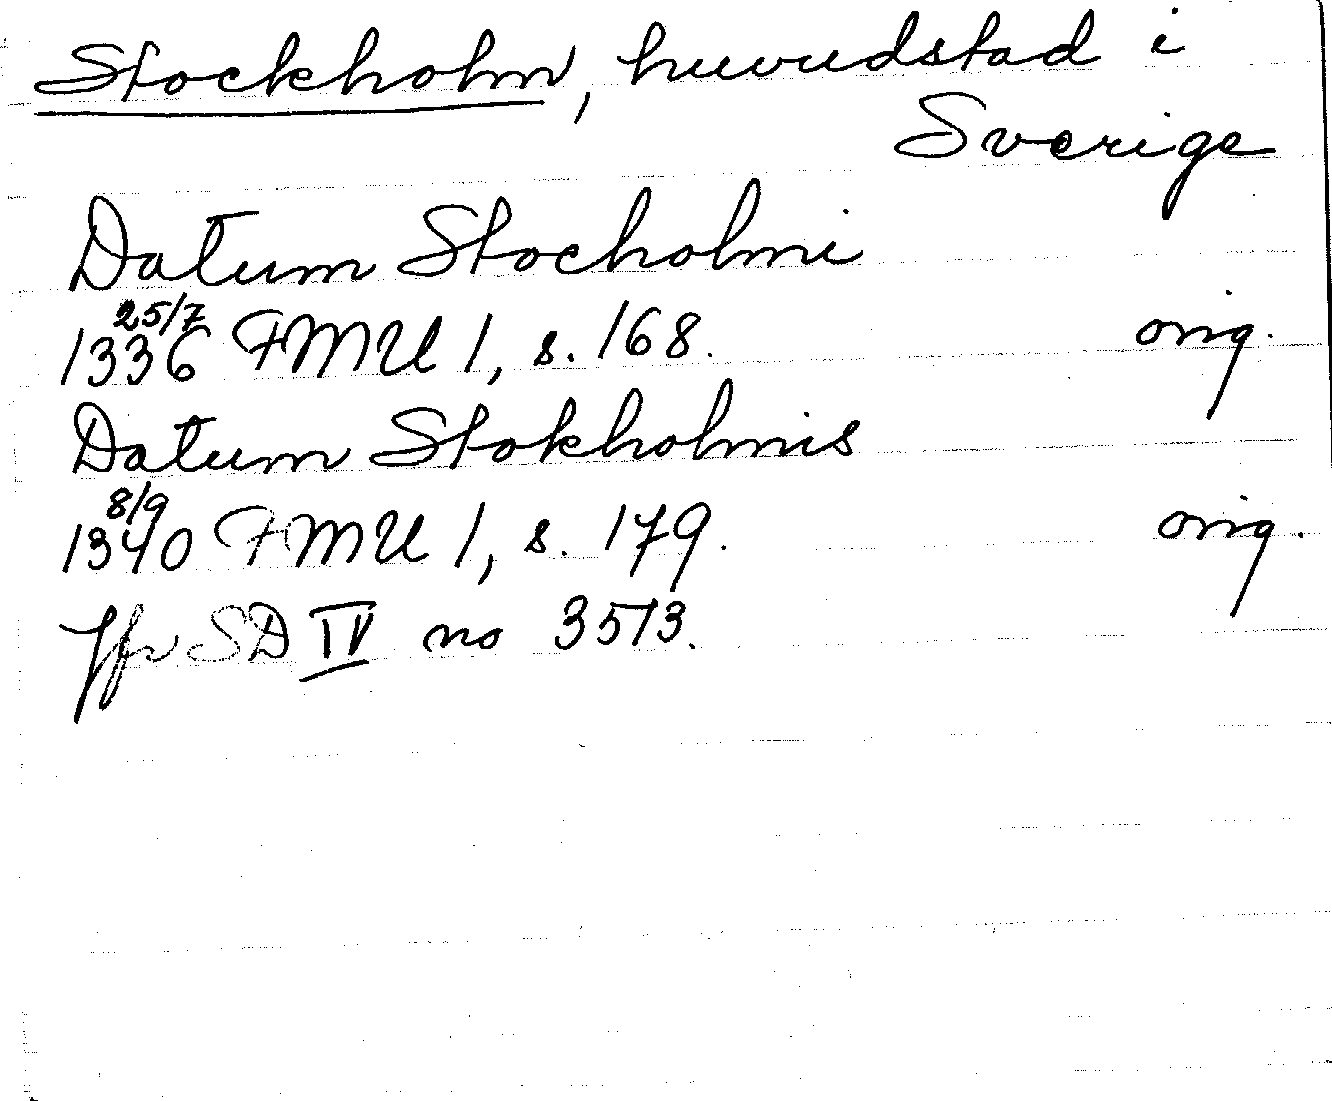 Stockholm, huvudstad i
Sverige
Datum Stocholmi
25/7
1336 FMU 1, s. 168. orig.
Datum Stokholmis
8/9
1340 FMU 1, s. 179. orig.
Jfr SD IV no 3513.